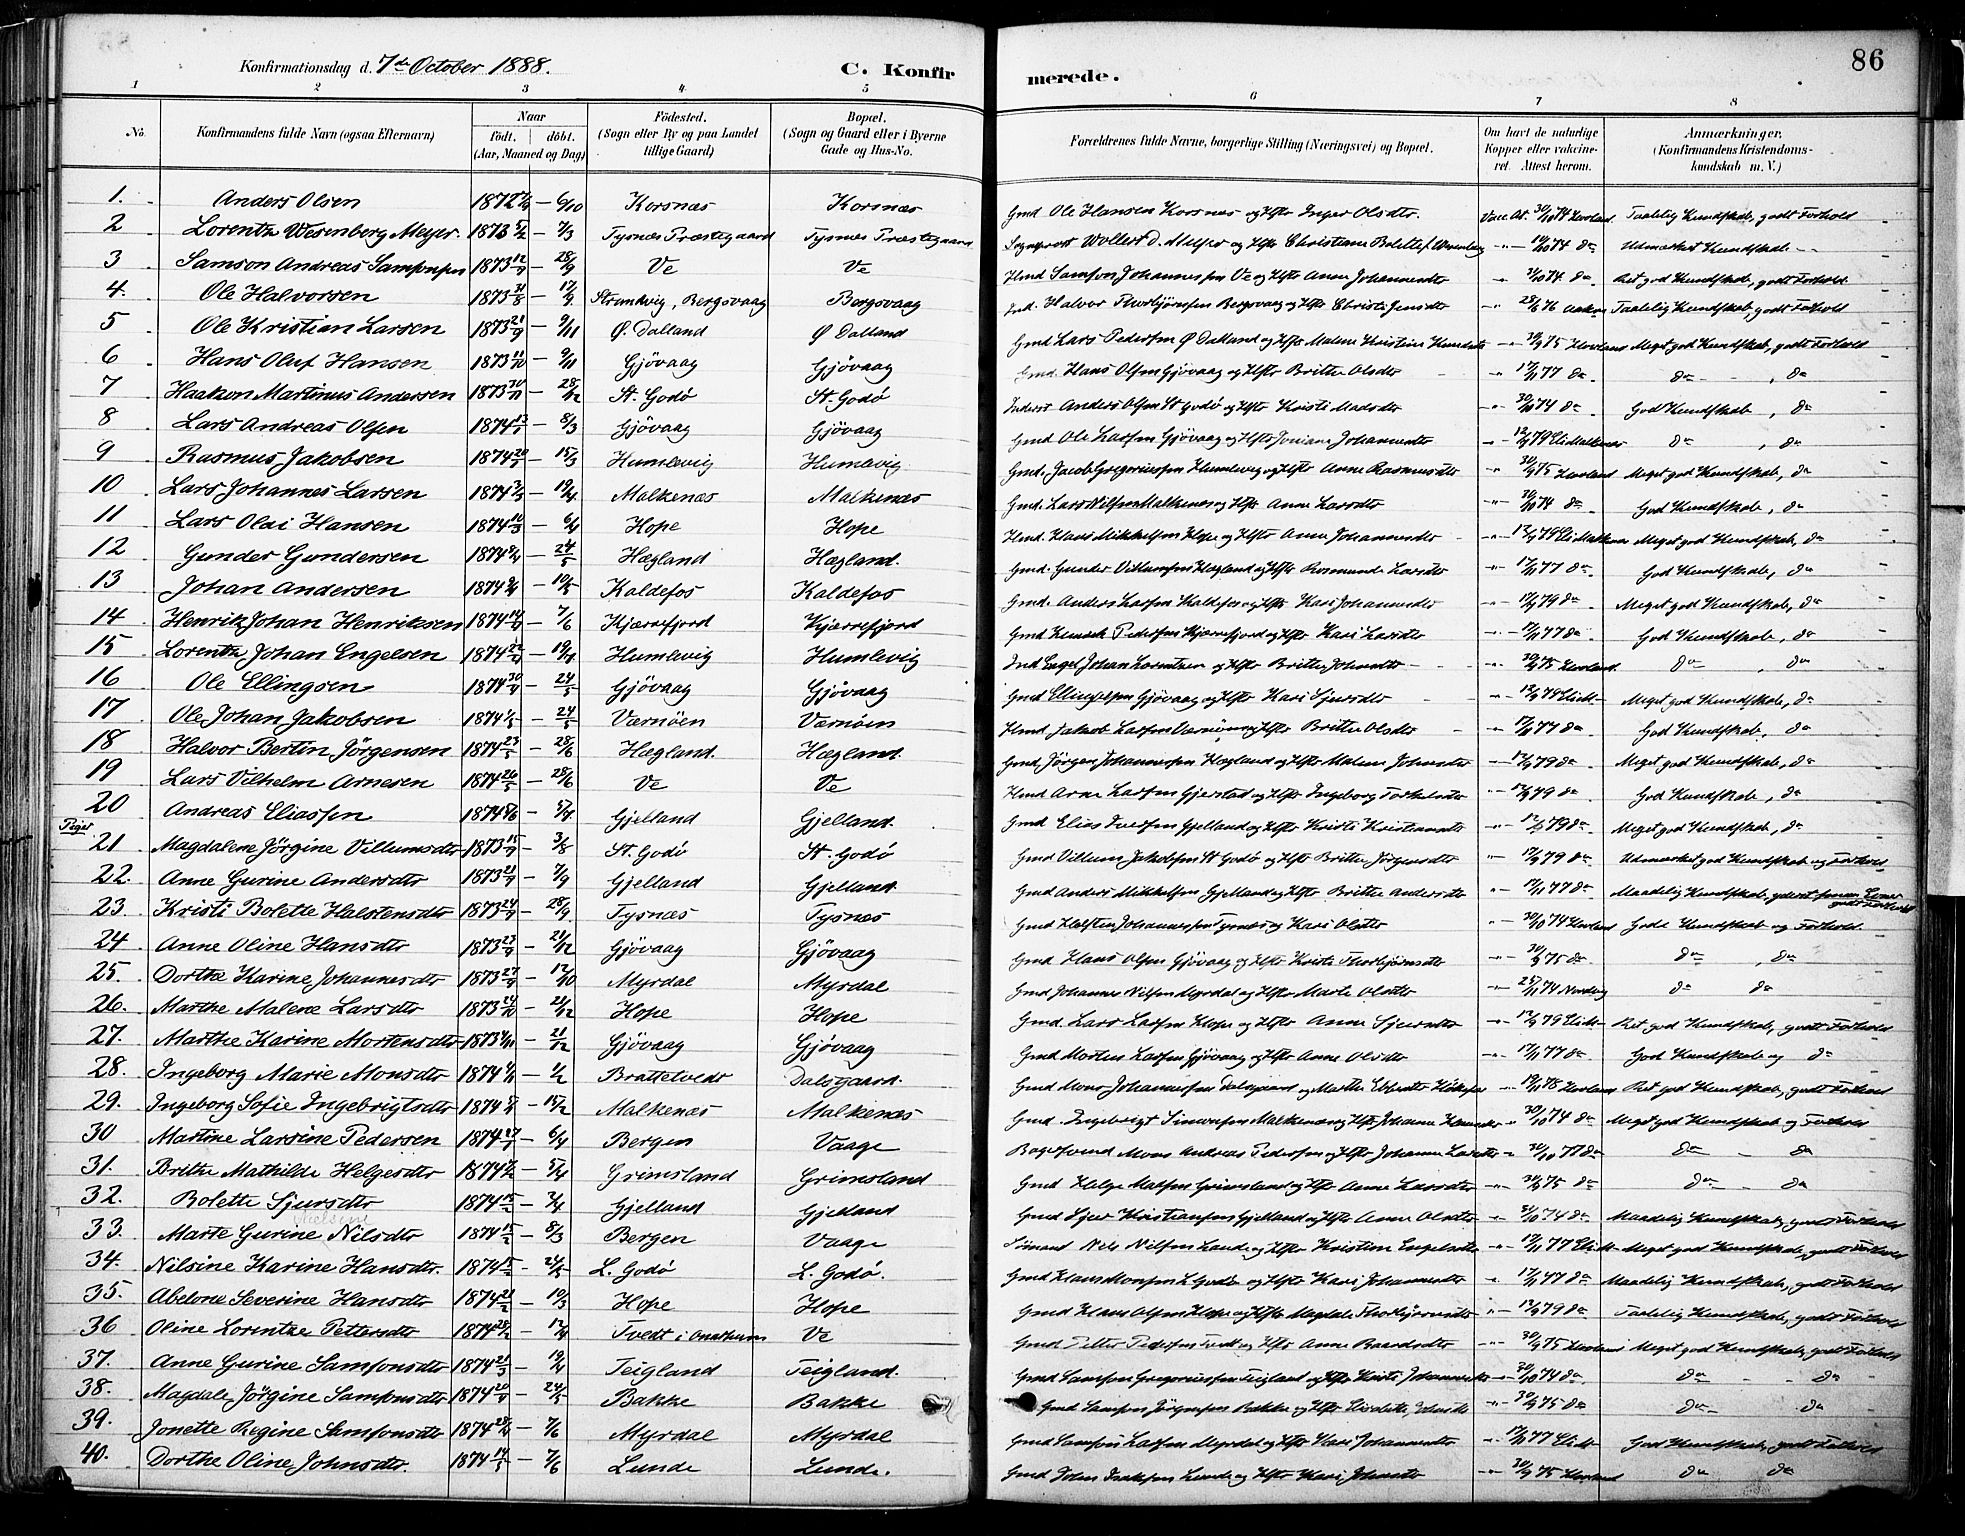 86
Konfirmationsdag d. 7de October 1888. C. Konfirmerede.
1 2 3 4 5 6 7 8
No. Konfirmandens fulde Navn (ogsaa Efternavn) Naar født. døbt. (Aar, Maaned og Dag) Fødested. (Sogn eller By og paa Landet tillige Gaard) Bopæl. (Sogn og Gaard eller i Byerne Gade og Hus-No. Forældrenes fulde Navne, borgerlige Stilling (Næringsvei) og Bopæl. Om havt de naturlige Kopper eller vakcineret. Attest herom. Anmærkninger. (Konfirmandens Kristendomskundskab m. V.)
1. Anders Olsen 1872 – 6/10 Korsnæs Korsnæs Gmd Ole Hansen Korsnæs og Hstr Inger Olsdtr. Vacc. At. 30/10 74 Taalelig Kundskab, godt Forhold
2 Lorentz Wesenberg Meyer. 1873 5/2 – 7/3 Tysnæs Præstegaard Tysnæs Præstegaard Udmærket Kundskab
3 Samson Andreas Samsonsen 1873 12/9 – 28/9 Ve Ve Hmd Samson Johannessen Ve og Hstr Anne Johannesdtr Ret god Kundskab, godt Forhold
4. Ole Halvorsen 1873 31/8 – 17/9 Strandvig, Bergsvaag Bergsvaag Ind. Halvor Thorbjørnsen Bergsvaag og Hstr Christi Jensdtr Taalelig Kundskab, godt Forhold
5 Ole Kristian Larsen 1873 21/9 – 9/11 Ø. Dalland Ø Dalland Gmd Lars Pedersen Ø Dalland og Hstr Malene Kristine Meget god Kundskab, godt Forhold
6 Hans Oluf Hansen 1873 11/10 – 9/11 Gjövaag Gjövaag Gmd. Hans Olsen Gjövaag og Hstr Brithe Olsdtr 17/11 77 do do , do
7 Haakon Martinus Andersen 1873 30/11 – 28/12 St. Godö St. Godö Inderst Anders Olsen St Godö og Hstr Kristi Madsdtr 30/10 74 do God Kundskab, do
8 Lars Andreas Olsen 1874 13/1 – 8/3 Gjövaag Gjövaag Gmd Ole Larsen Gjövaag og Hstr Johannesdtr do , do
9 Rasmus Jakobsen 1874 20/1 – 15/3 Humlevig Humlevig Gmd. Jacob Gregoriussen Humlevig og Hstr Anne Rasmusdtr Meget god Kundskab, do
10 Lars Johannes Larsen 1874 3/3 – 19/4 Malkenæs Malkenæs Gmd. Lars Nilsen Malkenæs og Hstr Anne Larsdtr 30/10 74 do God Kundskab, do
11 Lars Olai Hansen 1874 10/3 – 6/4 Hope Hope Hmd. Hans Mikkelsen Hope og Hstr Anna Johannesdtr Meget god Kundskab, do
12 Gunder Gundersen 1874 – 24/5 Hægland Hægland. Gmd. Gunder Villumsen Hægland og Hstr Rasmunde Larsdtr 17/11 77 do God Kundskab, do
13 Johan Andersen 1874 – 10/5 Kaldefos Kaldefos Gmd. Anders Larsen Kaldefos og Hstr Kari Johannesdtr 12/9 79 do Meget god Kundskab, do
14 Henrik Johan Henriksen 1874 14/4 – 7/6 Kjærrefjord Kjærrefjord Gmd Henrik Pedersen Kjærrefjord og Hstr Kari Larsdtr 17/11 77 do God Kundskab, do
15 Lorentz Johan Engelsen 1874 22/2 – 19/4 Humlevig Humlevig Ind Engel Johan Lorentzen og Hstr Brithe Johnsdtr do , do
16 Ole Ellingsen 1874 30/4 – 24/5 Gjövaag Gjövaag Gmd Elling Olsen Gjövaag og Hstr Kari Sjursdtr Meget god Kundskab, do
17 Ole Johan Jakobsen 1874 1/5 – 24/5 Værnöen Værnöen Hmd Jakob Larsen Værnöen og Hstr Brithe Olsdtr 17/11 77 do God Kundskab, do
18 Halvor Bertin Jörgensen 1874 23/5 – 28/6 Hægland. Hægland. Gmd Jörgen Johannessen Hægland og Hstr Malene Johnsdtr 12/9 79 do Meget god Kundskab, do
19 Lars Vilhelm Arnesen 1874 26/5 – 28/6 Ve Ve Hmd Arne Larsen Gjerstad og Hstr Ingeborg Torkelsdtr 12/9 79 do God Kundskab, do
20 Andreas Eliassen 1874 – 5/7 Gjelland Gjelland. Gmd Elias Iversen Gjelland og Hstr Kristi Kristiansdtr 12/9 79 do Meget god Kundskab, do
Piger
21 Magdalene Jörgine Villumsdtr 1873 15/7 – 3/8 St. Godö St. Godö Gmd Villum Jakobsen St Godö og Hstr Brithe Jörgensdtr 12/9 79 do Udmærket god Kundskab og Forhold
22. Anne Gurine Andersdtr 1873 21/7 – 7/9 Gjelland Gjelland Gmd Anders Mikkelsen Gjelland og Hstr Brithe Andersdtr 17/11 77 do Maadelig Kundskab,
23. Kristi Bolette Halstensdtr 1873 24/9 – 28/9 Tysnæs Tysnæs Gmd Halsten Johannessen Tysnæs og Kari Olsdtr 30/10 74 God Kundskab og Forhold.
24 Anne Oline Hansdtr 1873 23/9 – 21/12 Gjövaag Gjövaag Gmd Hans Olsen Gjövaag og Hstr Kristi Thorbjörnsdtr do , do
25. Dorthe Karine Johannesdtr 1873 27/9 – 12/10 Myrdal Myrdal Gmd Johannes Nilsen Myrdal og Hstr Marta Olsdtr do do
26. Marthe Malene Larsdtr 1873 24/10 – 21/12 Hope Hope Gmd. Lars Larsen Hope og Hstr Anne Sjursdtr Ret god Kundskab, godt Forhold
27. Marthe Karine Mortensdtr 1873 – 21/12 Gjövaag Gjövaag Gmd Morten Larsen Gjövaag og Hstr Anne Olsdtr 17/11 77 do God Kundskab og do
28. Ingeborg Marie Monsdtr 1874 – 1/2 Brattetvedt Dalsgaard. Gmd Mons Johannessen Dalsgaard og Marthe Ret god Kundskab, godt Forhold
29. Ingeborg Sofie Ingebrigtsdtr 1874 – 15/2 Malkenæs Malkenæs Gmd. Ingebrigt Simonsen Malkenæs og Hstr Johanna 30/10 74 do Meget god Kundskab og Forhold
30 Martine Larsine Pedersen 1874 27/1 – 6/4 Bergen Vaage Bagersvend Mons Andreas Pedersen og Hstr Johanne Larsdtr do do
31. Brithe Mathilde Helgesdtr 1874 – 5/4 Grimsland Grimsland Gmd Helge Grimsland og Hstr Anne Larsdtr do do
32. Bolette Sjursdtr 1874 15/2 – 3/4 Gjelland Gjelland Gmd Sjur Kristiansen Gjelland og Hstr Anne Olsdtr Maadelig Kundskab, godt Forhold
33. Marte Gurine Nilsdtr 1874 15/2 – 8/3 Bergen Vaage Sömand Nils Nilsen Lande og Hstr Kristine Engelsdtr Meget god Kundskab, godt Forhold
34. Nilsine Karine Hansdtr. 1874 15/2 – 24/5 L. Godö L. Godö. Gmd Hans Monsen L Godö og Hstr Kari Johannesdtr 17/11 77 do Maadelig Kundskab, godt Forhold
35. Abelone Severine Hansdtr 1874 21/2 – 10/3 Hope Hope Gmd Hans Olsen Hope og Hstr Magdale Thorbjörnsdtr 12/9 79 do Taalelig Kundskab, godt Forhold
36 Oline Lorentze Pettersdtr 1874 28/2 – 12/4 Tvedt i Onarheim Ve Gmd Petter Pedersen Tvedt og Hstr Anne Baardsdtr Meget god Kundskab, godt Forhold
37. Anne Gurine Samsonsdtr 1874 21/3 – 19/4 Teigland Teigland. Gmd Samson Gregoriussen Teigland og Hstr Kristi Johannesdtr 30/10 74 do do do
38. Magdale Jörgine Samsonsdtr 1874 20/4 – 24/5 Bakke Bakke Gmd Samson Jörgensen Bakke og Hstr do do
39. Jonette Regine Samsonsdtr 1874 28/4 – 7/6 Myrdal Myrdal Gmd Samson Larsen Myrdal og Hstr Kari Johannesdtr God Kundskab, godt Forhold
40. Dorthe Oline Johnsdtr. 1874 14/5 – 7/6 Lunde Lunde. Gmd John Lunde og Hstr Kari do do